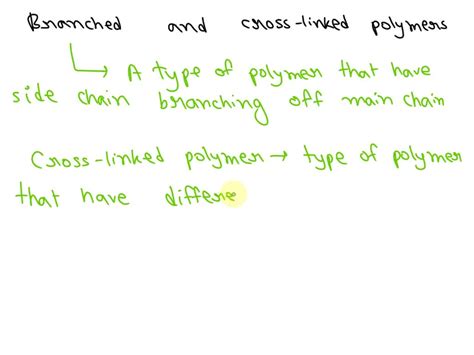 Branched and cross-linked polymers
A type of polymer that have
side chain branching off main chain
Cross-linked polymer → type of polymer
that have differe